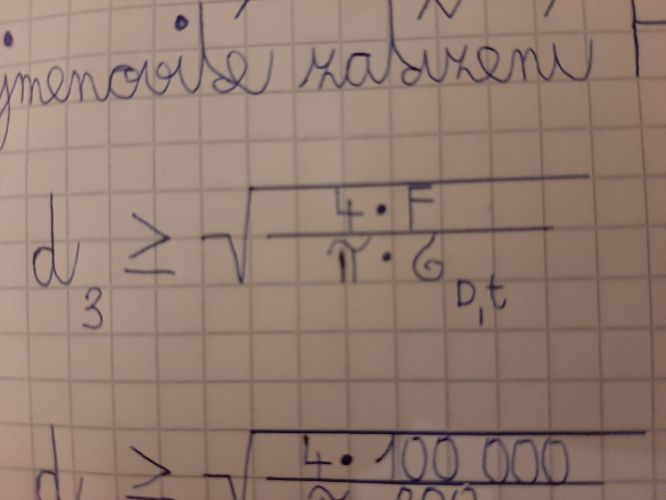 jmenovité zatížení
d₃ ≥ √(4 · F / π · σ_D,t)
d ≥ √(4 · 100 000